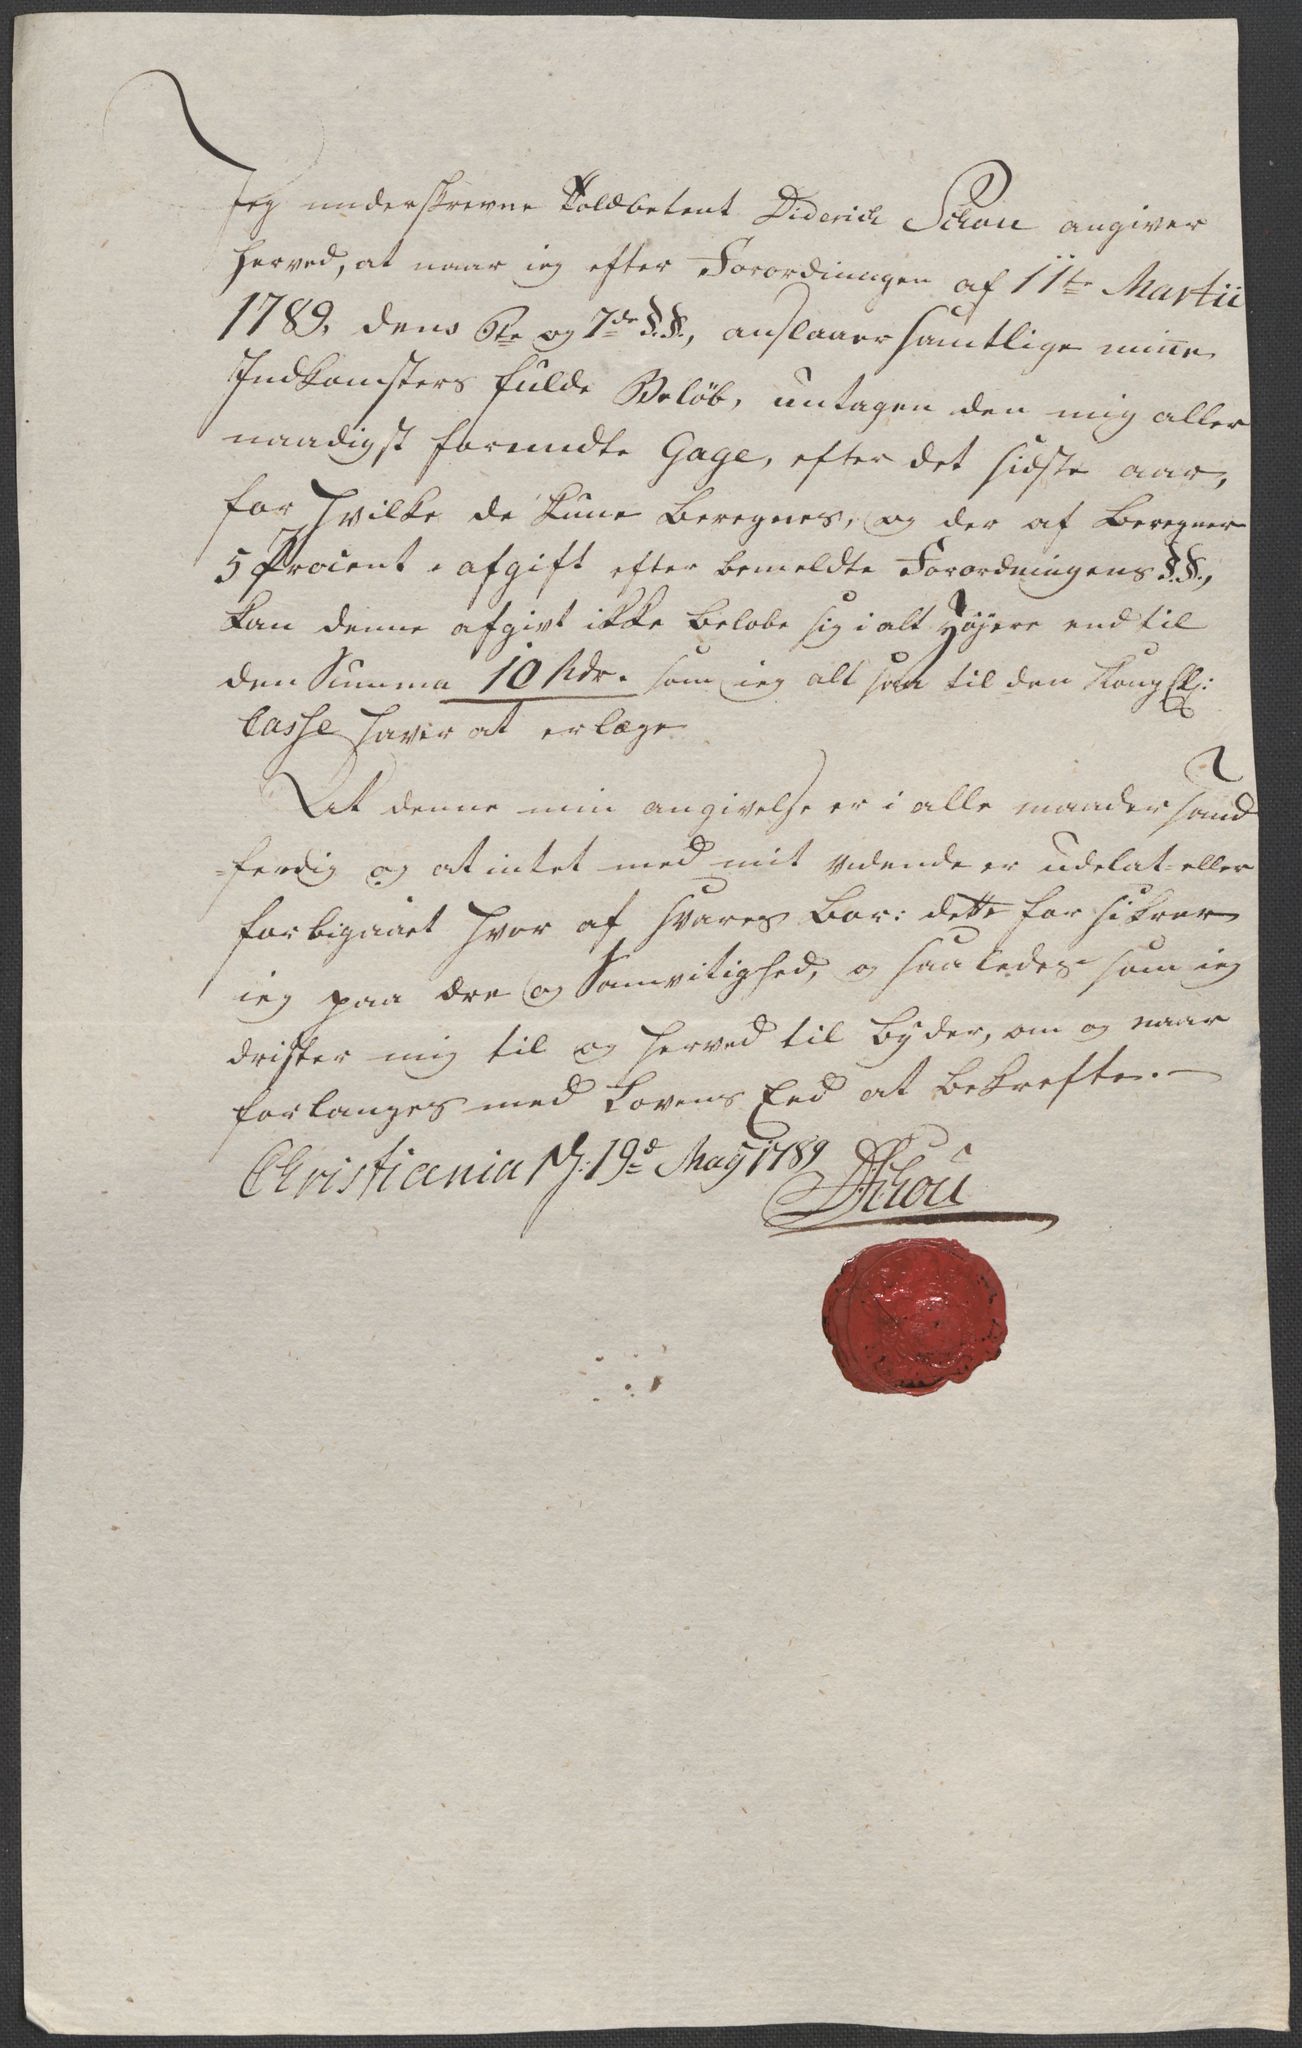 Jeg underskrevne Toldbetient Diderich Schou angiver
herved, at naar ieg efter Forordningen af 11te Martii
1789, dens 6te og 7de §.§., anslaaer samtlige mine
Indkomsters fulde Beløb, untagen den mig aller
naadigst forundte Gage, efter det sidste aar,
for hvilke de kune beregnes, og der af beregner
5 Procent afgift efter bemeldte Forordningens §.§.,
kan denne afgivt ikke beløbe sig i alt høyere end til
den Summa 10 Rdr. som ieg alt saa til den Kongel:
Casse haver at erlæge
At denne min angivelse er i alle maader sand
=ferdig og at intet med mit vidende er udelat eller
forbigaaet hvor af svares bør: dette for sikrer
ieg paa ære og Samvitighed, og saaledes som ieg
drister mig til og herved til byder, om og naar
forlanges med Lovens Eed at bekrefte.
Christiania d: 19d May 1789
DSchou